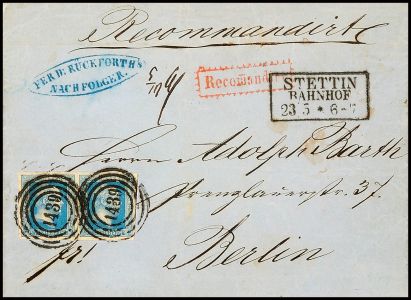 Recommandirt
FERD. RÜCKFORTH'S
NACHFOLGER.
Recomand
STETTIN
BAHNHOF
23 5 * 6-7
Herrn Adolph Barth
Prenzlauerstr. 37.
Berlin
1439
1439
fr!